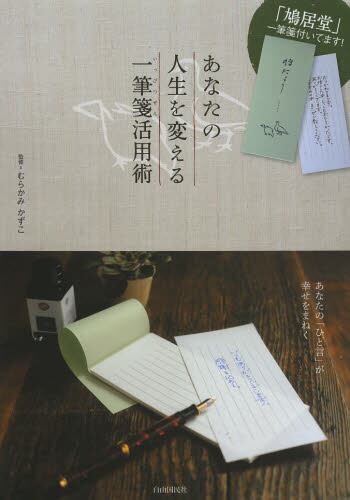 「鳩居堂」
一筆箋付いてます!
あなたの
人生を変える
いっぴつせん
一筆箋活用術
監修・むらかみ かずこ
あなたの「ひと言」が
幸せをまねく
自由国民社